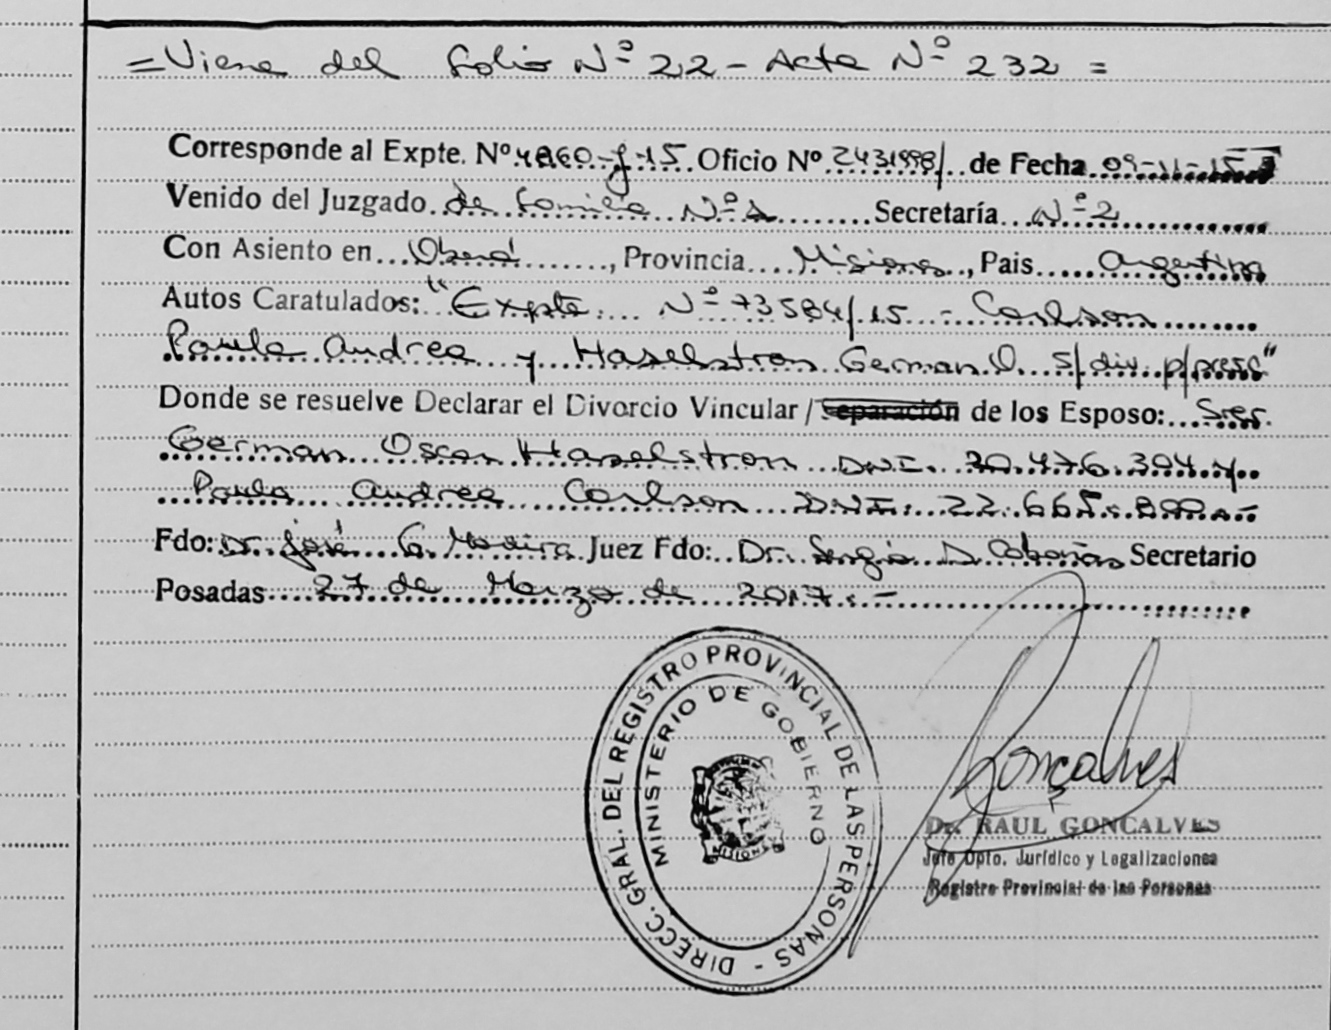 = Viene del Folio Nº 22 - Acta Nº 232 =
Corresponde al Expte. Nº 4860-J-15 Oficio Nº 2431998/ de Fecha 09-11-15
Venido del Juzgado de Familia Nº 1 Secretaría Nº 2
Con Asiento en Oberá, Provincia Misiones, Pais Argentina
Autos Caratulados: "Expte. Nº 73584/15 - Carlson
Paula Andrea y Haselstron German O. s/ div. p/ pres"
Donde se resuelve Declarar el Divorcio Vincular / Separación de los Esposo: Sres.
German Oscar Haselstron DNI. 20.476.304 y
Paula Andrea Carlson DNI. 22.665.890.-
Fdo: Dr. José G. Moreira Juez Fdo: Dr. Sergio D. Cabañas Secretario
Posadas 27 de Marzo de 2017.-
DIRECC. GRAL. DEL REGISTRO PROVINCIAL DE LAS PERSONAS -
MINISTERIO DE GOBIERNO
MISIONES
Gonçalves
Dr. RAUL GONCALVES
Jefe Dpto. Jurídico y Legalizaciones
Registro Provincial de las Personas